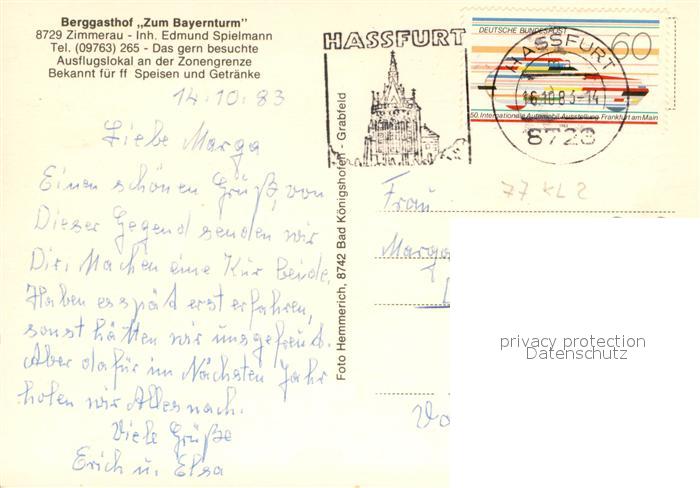 Berggasthof „Zum Bayernturm"
8729 Zimmerau - Inh. Edmund Spielmann
Tel. (09763) 265 - Das gern besuchte
Ausflugslokal an der Zonengrenze
Bekannt für ff Speisen und Getränke
14.10.83
Liebe Marga
Einen schönen Gruß, von
Dieser Gegend senden wir
Dir, Machen eine Kur beide.
Haben es spät erst erfahren,
sonst hätten wir uns gefreut.
Aber dafür im Nächsten Jahr
holen wir Alles nach.
Viele Grüße
Erich u. Elsa
Foto Hemmerich, 8742 Bad Königshofen - Grabfeld
HASSFURT
DEUTSCHE BUNDESPOST
60
50. Internationale Automobil-Ausstellung Frankfurt am Main
HASSFURT
16.10.83-14
8728
77 KL 2
Frau
Marga
privacy protection
Datenschutz